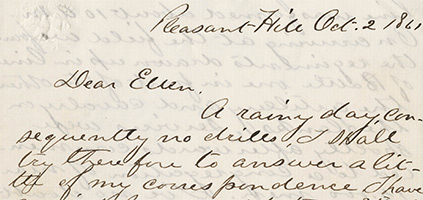 Pleasant Hill Oct. 2 1861
Dear Ellen.
A rainy day, con-
sequently no drills, I shall
try therefore to answer a lit-
tle of my correspondence I have